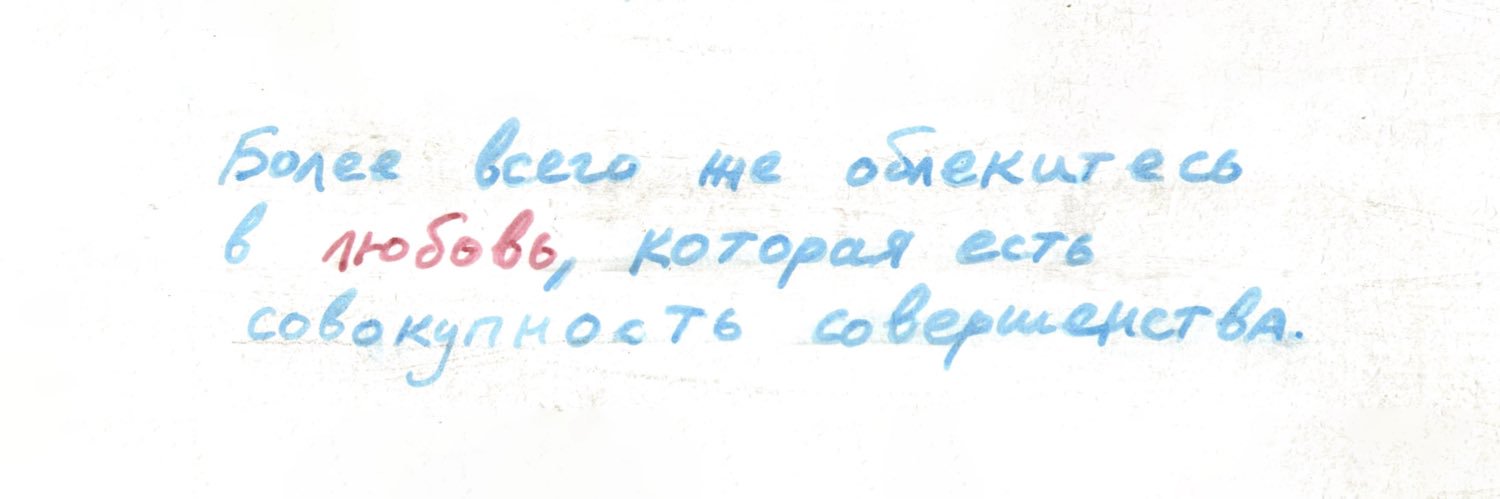 Более всего же облекитесь
в любовь, которая есть
совокупность совершенства.